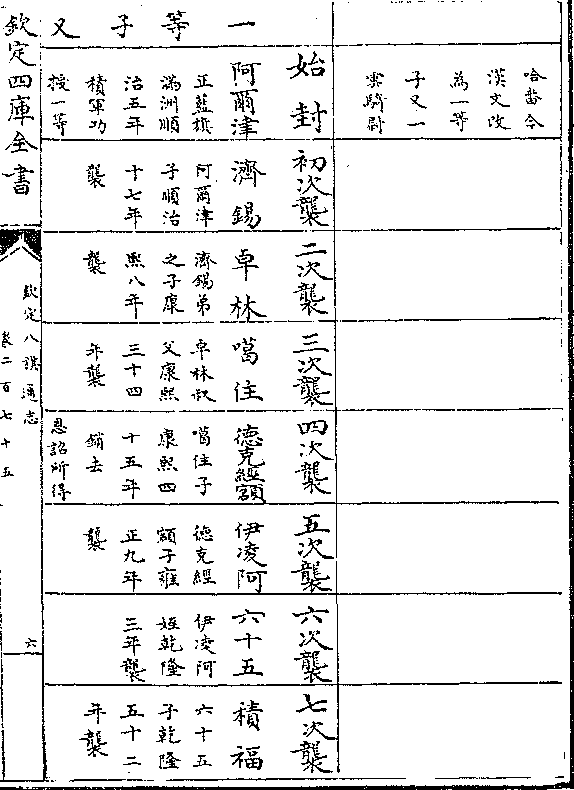 一等子又
哈番今
漢文改
為一等
子又一
雲騎尉
始封
阿爾津
正藍旗
滿洲順
治五年
積軍功
授一等
初次襲
濟錫
阿爾津
子順治
十七年
襲
二次襲
卓林
濟錫弟
之子康
熙八年
襲
三次襲
噶住
卓林叔
父康熙
三十四
年襲
四次襲
德克經額
噶住子
康熙四
十五年
銷去
恩詔所得
五次襲
伊凌阿
德克經
額子雍
正九年
襲
六次襲
六十五
伊凌阿
姪乾隆
三年襲
七次襲
積福
六十五
子乾隆
五十二
年襲
欽定四庫全書
欽定八旗通志
卷二百七十五
六